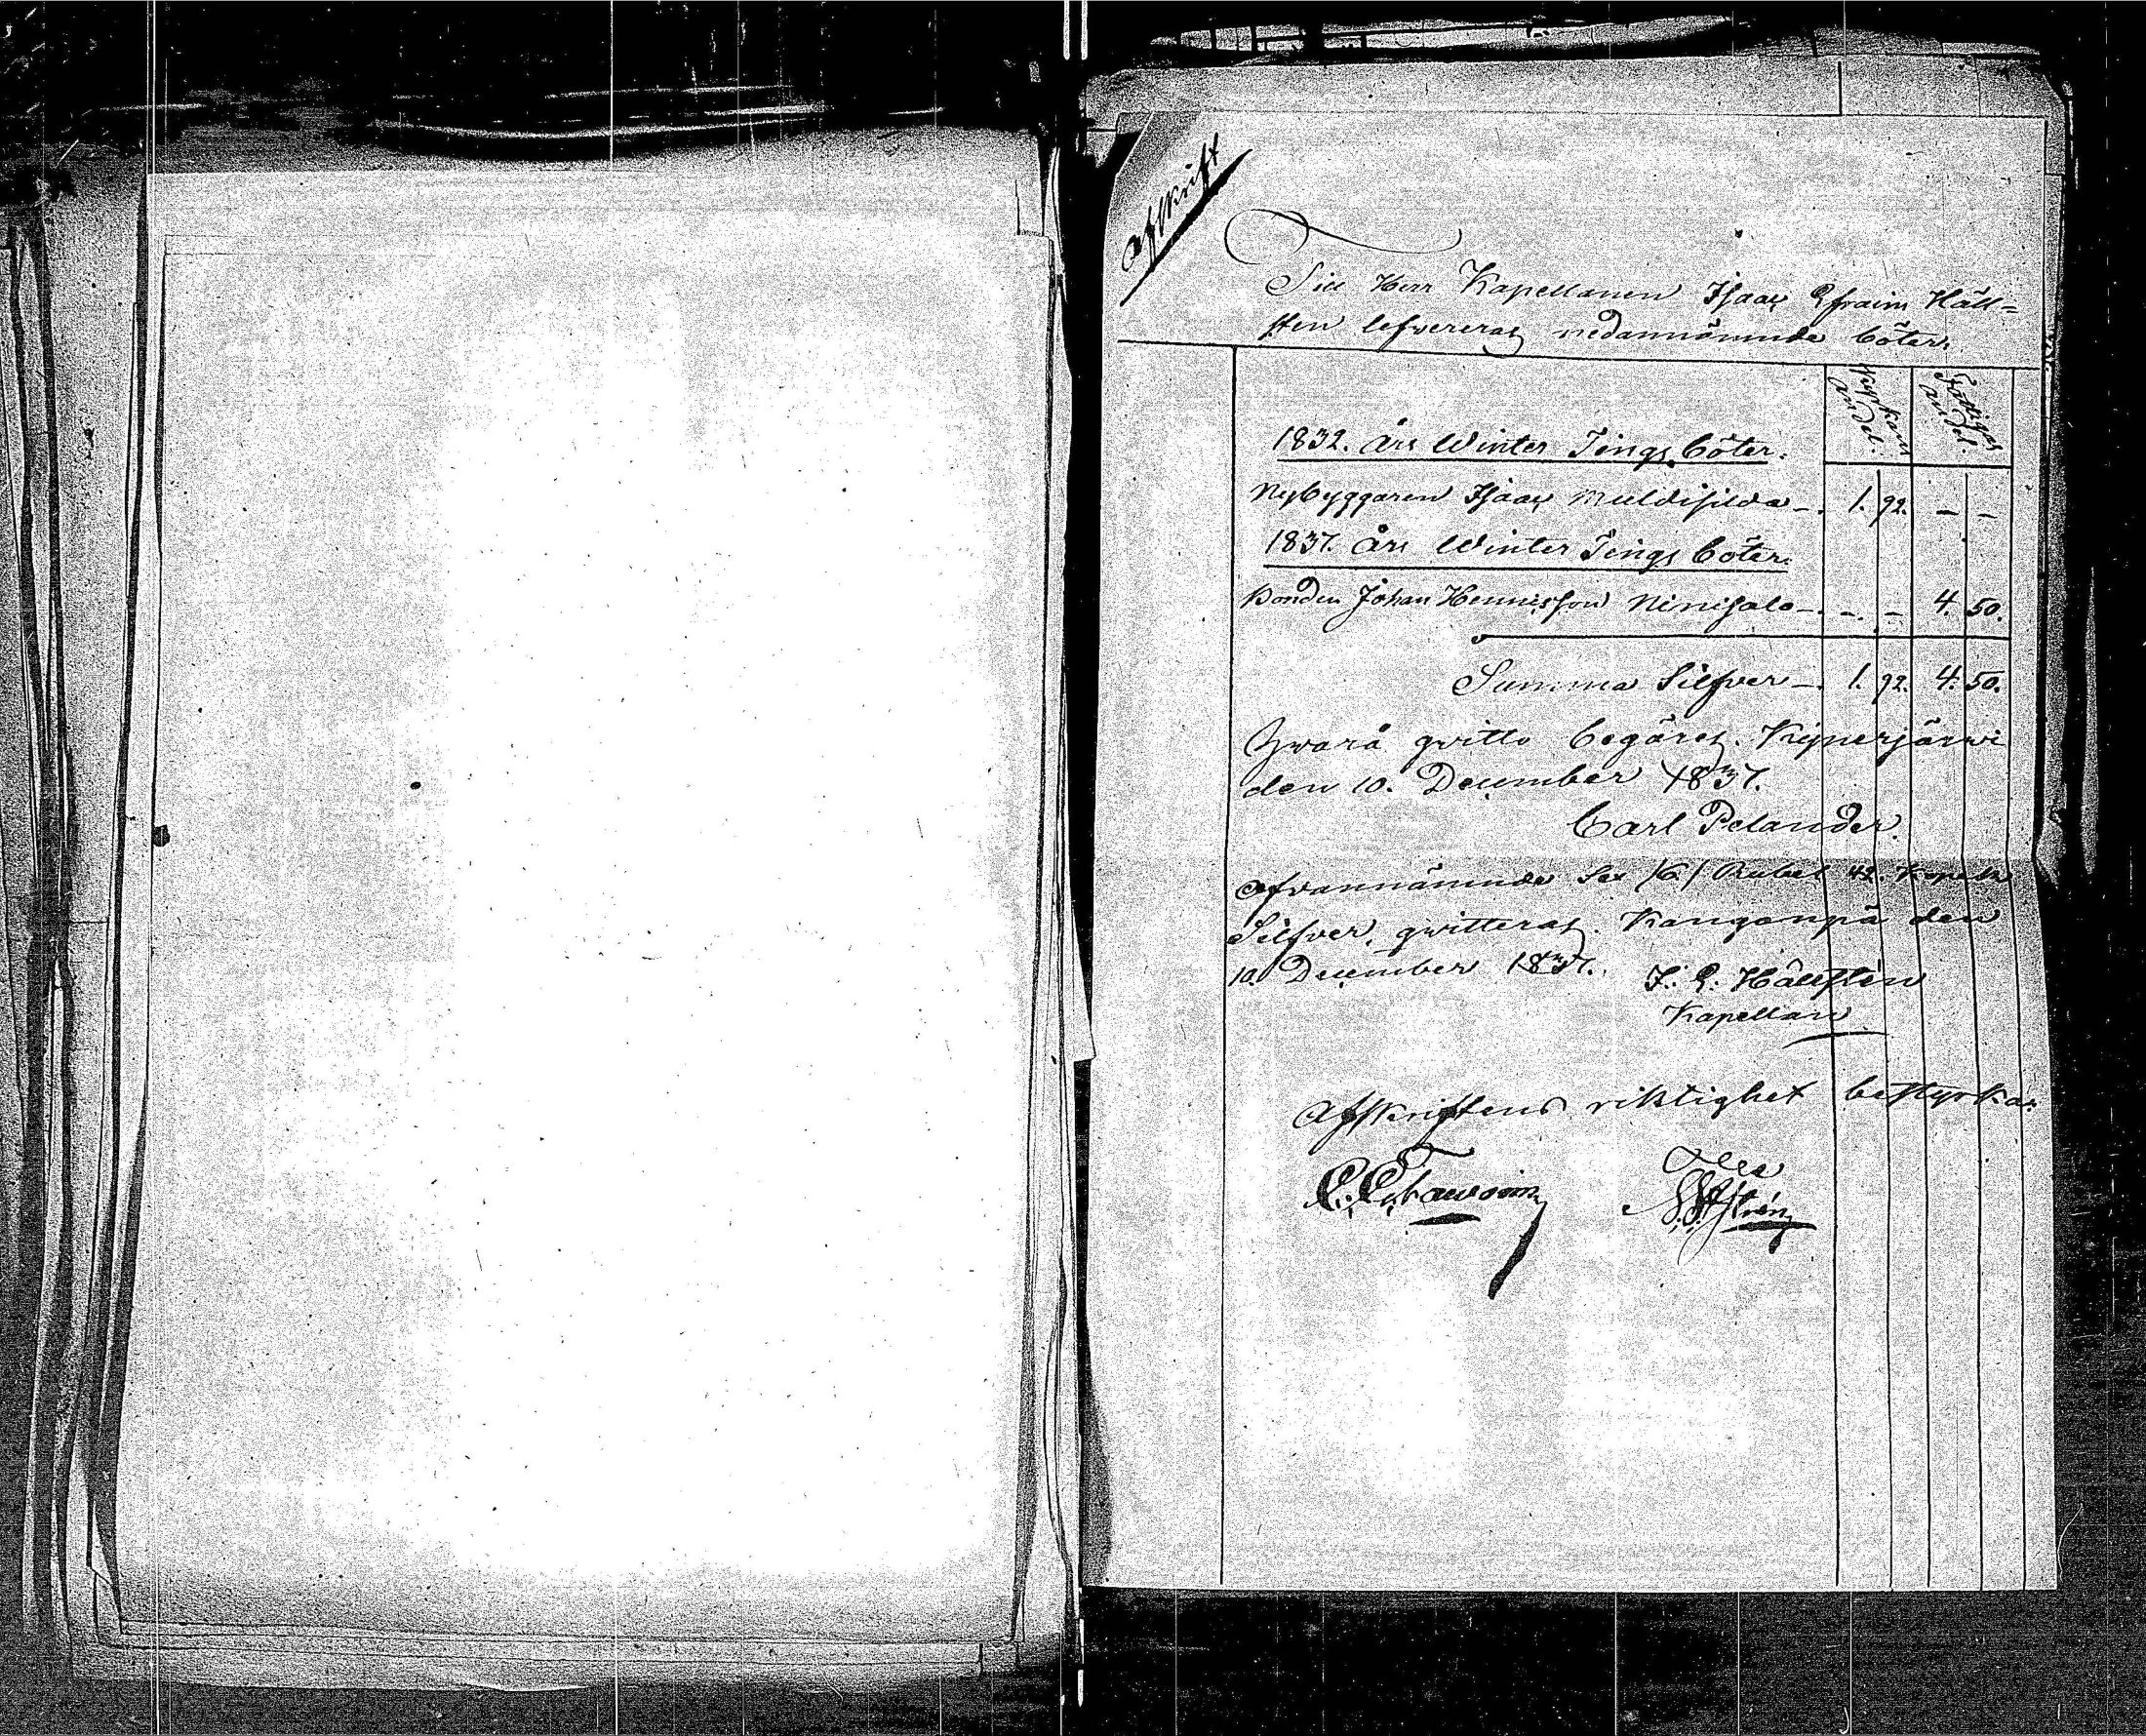 Afskrift
Till Herr Kapellanen Isaac Efraim Häll=
sten lefvereras nedannämnde böter.
Kyrkans andel. Fattigas andel.
1832. Års Winter Tings böter.
Nybyggaren Isaac Muldisilda –. 1. 92. – –
1837. Års Winter Tings böter.
Bonden Johan Hennisson Ninisalo –. –. – 4. 50.
Summa Silfver –. 1. 92. 4. 50.
Hvarå qvitto begäres. Kyperjärwi
den 10. December 1837.
Carl Pelander.
Ofvannämnde Sex /6/ Rubel 42. Kopek
Silfver, qvitteras. Kangonpä den
10. December 1837. I. E. Hällstén
Kapellan
Afskriftens riktighet bestyrka: